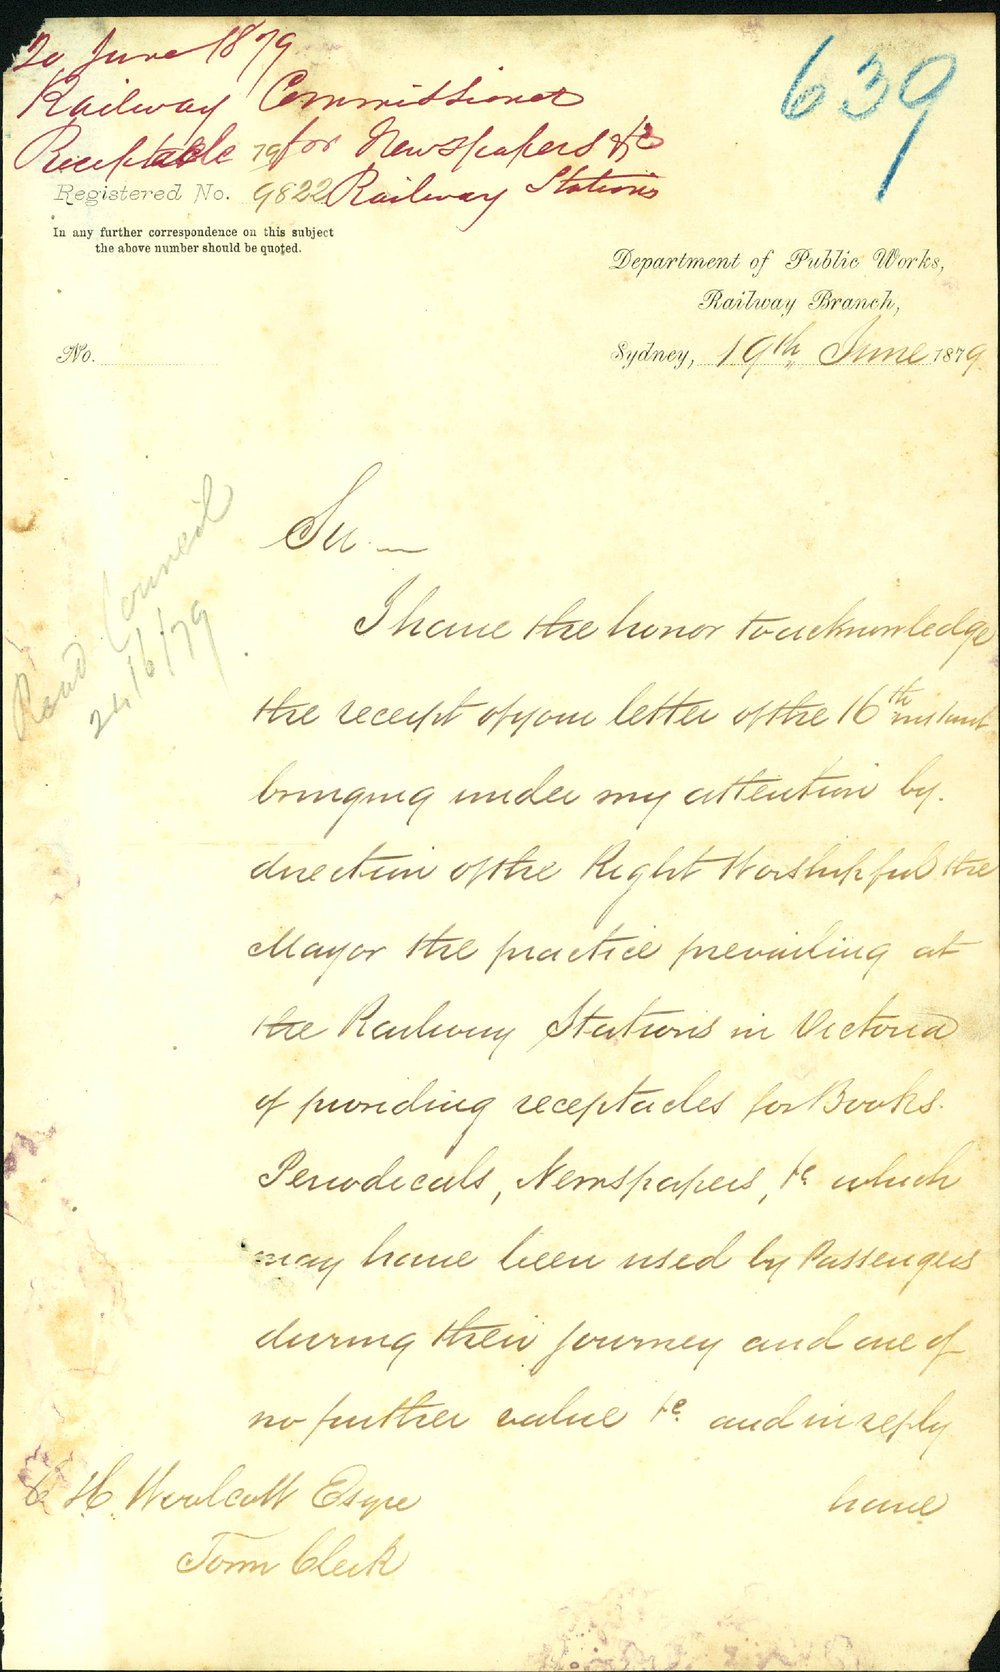 20 June 1879
Railway Commissioner
Receptacle for Newspapers &c
Railway Stations
639
79
Registered No. 9822
In any further correspondence on this subject
the above number should be quoted.
Department of Public Works,
Railway Branch,
No.
Sydney, 19th June 1879.
Read Council
24/6/79
Sir. —
I have the honor to acknowledge
the receipt of your letter of the 16th instant
bringing under my attention by.
direction of the Right Worshipful the
Mayor the practice prevailing at
the Railway Stations in Victoria
of providing receptacles for Books.
Periodicals, Newspapers, &c which
may have been used by Passengers
during their journey and are of
no further value &c. and in reply
have
C. H. Woolcott Esqre
Town Clerk